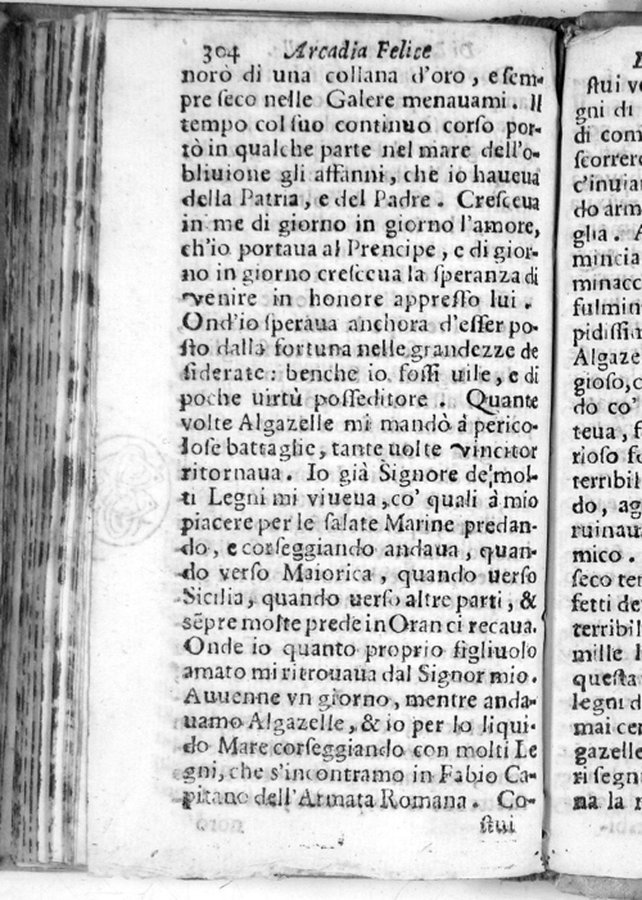 304 Arcadia Felice
norò di una collana d'oro, e sem-
pre seco nelle Galere menauami. Il
tempo col suo continuo corso por-
tò in qualche parte nel mare dell'o-
bliuione gli affanni, che io haueua
della Patria, e del Padre. Cresceua
in me di giorno in giorno l'amore,
ch'io portaua al Prencipe, e di gior-
no in giorno cresceua la speranza di
venire in honore appresso lui.
Ond'io speraua anchora d'esser po-
sto dalla fortuna nelle grandezze de
siderate: benche io fossi uile, e di
poche uirtù posseditore. Quante
volte Algazelle mi mandò à perico-
lose battaglie, tante uolte vincitor
ritornaua. Io già Signore de' mol-
ti Legni mi viueua, co' quali à mio
piacere per le salate Marine predan-
do, e corseggiando andaua, quan-
do verso Maiorica, quando uerso
Sicilia, quando uerso altre parti, &
sẽpre molte prede in Oran ci recaua.
Onde io quanto proprio figliuolo
amato mi ritrouaua dal Signor mio.
Auuenne vn giorno, mentre anda-
uamo Algazelle, & io per lo liqui-
do Mare corseggiando con molti Le
gni, che s'incontramo in Fabio Ca-
pitano dell'Armata Romana. Co-
stui
stui v
gni di
di com
scorrer
c'inuia
do arm
glia. A
mincia
minacc
fulmin
pidissi
Algaze
gioso, c
do co'
teua, f
rioso f
terribil
do, ag
ruinau
mico.
seco te
fetti de
terribil
mille l
questa
legni d
mai ce
gazelle
ri segn
na la